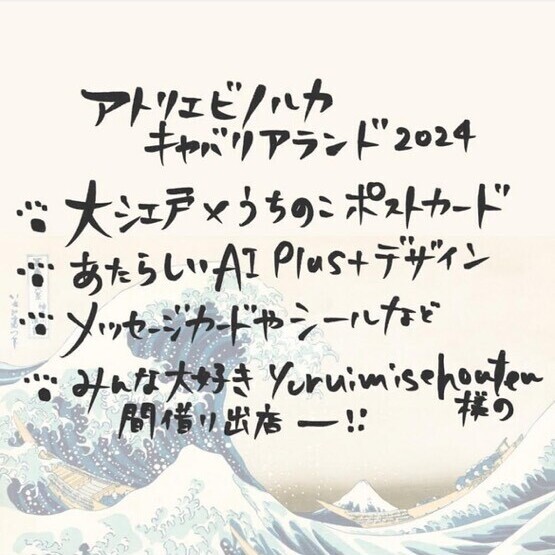 アトリエビノルカ
キャバリアランド2024
大江戸×うちのこポストカード
あたらしいAI Plus+デザイン
メッセージカードやシールなど
みんな大好きyuruimisehonten様の
間借り出店ー!!